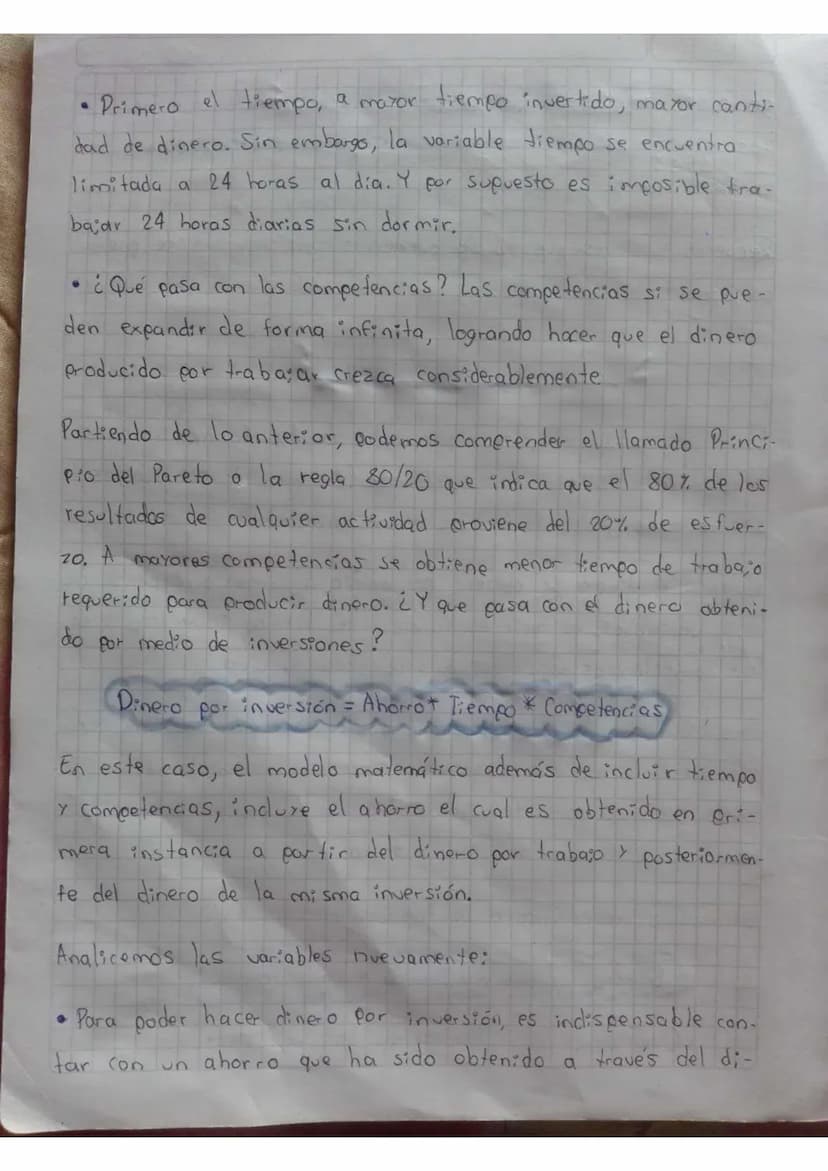 • Primero el tiempo, a mayor tiempo invertido, mayor canti-
dad de dinero. Sin embargo, la variable tiempo se encuentra
limitada a 24 horas al día. Y por supuesto es imposible tra-
bajar 24 horas diarias sin dormir.
• ¿Qué pasa con las competencias? Las competencias si se pue-
den expandir de forma infinita, logrando hacer que el dinero
producido por trabajar crezca considerablemente
Partiendo de lo anterior, podemos comprender el llamado Princi-
pio del Pareto o la regla 80/20 que indica que el 80% de los
resultados de cualquier actividad proviene del 20% de esfuer-
zo. A mayores competencias se obtiene menor tiempo de trabajo
requerido para producir dinero. ¿Y que pasa con el dinero obteni-
do por medio de inversiones?
Dinero por inversión = Ahorro + Tiempo * Competencias
En este caso, el modelo matemático además de incluir tiempo
y competencias, incluye el ahorro el cual es obtenido en pri-
mera instancia a partir del dinero por trabajo y posteriormen-
te del dinero de la misma inversión.
Analicemos las variables nuevamente:
• Para poder hacer dinero por inversión, es indispensable con-
tar con un ahorro que ha sido obtenido a través del di-